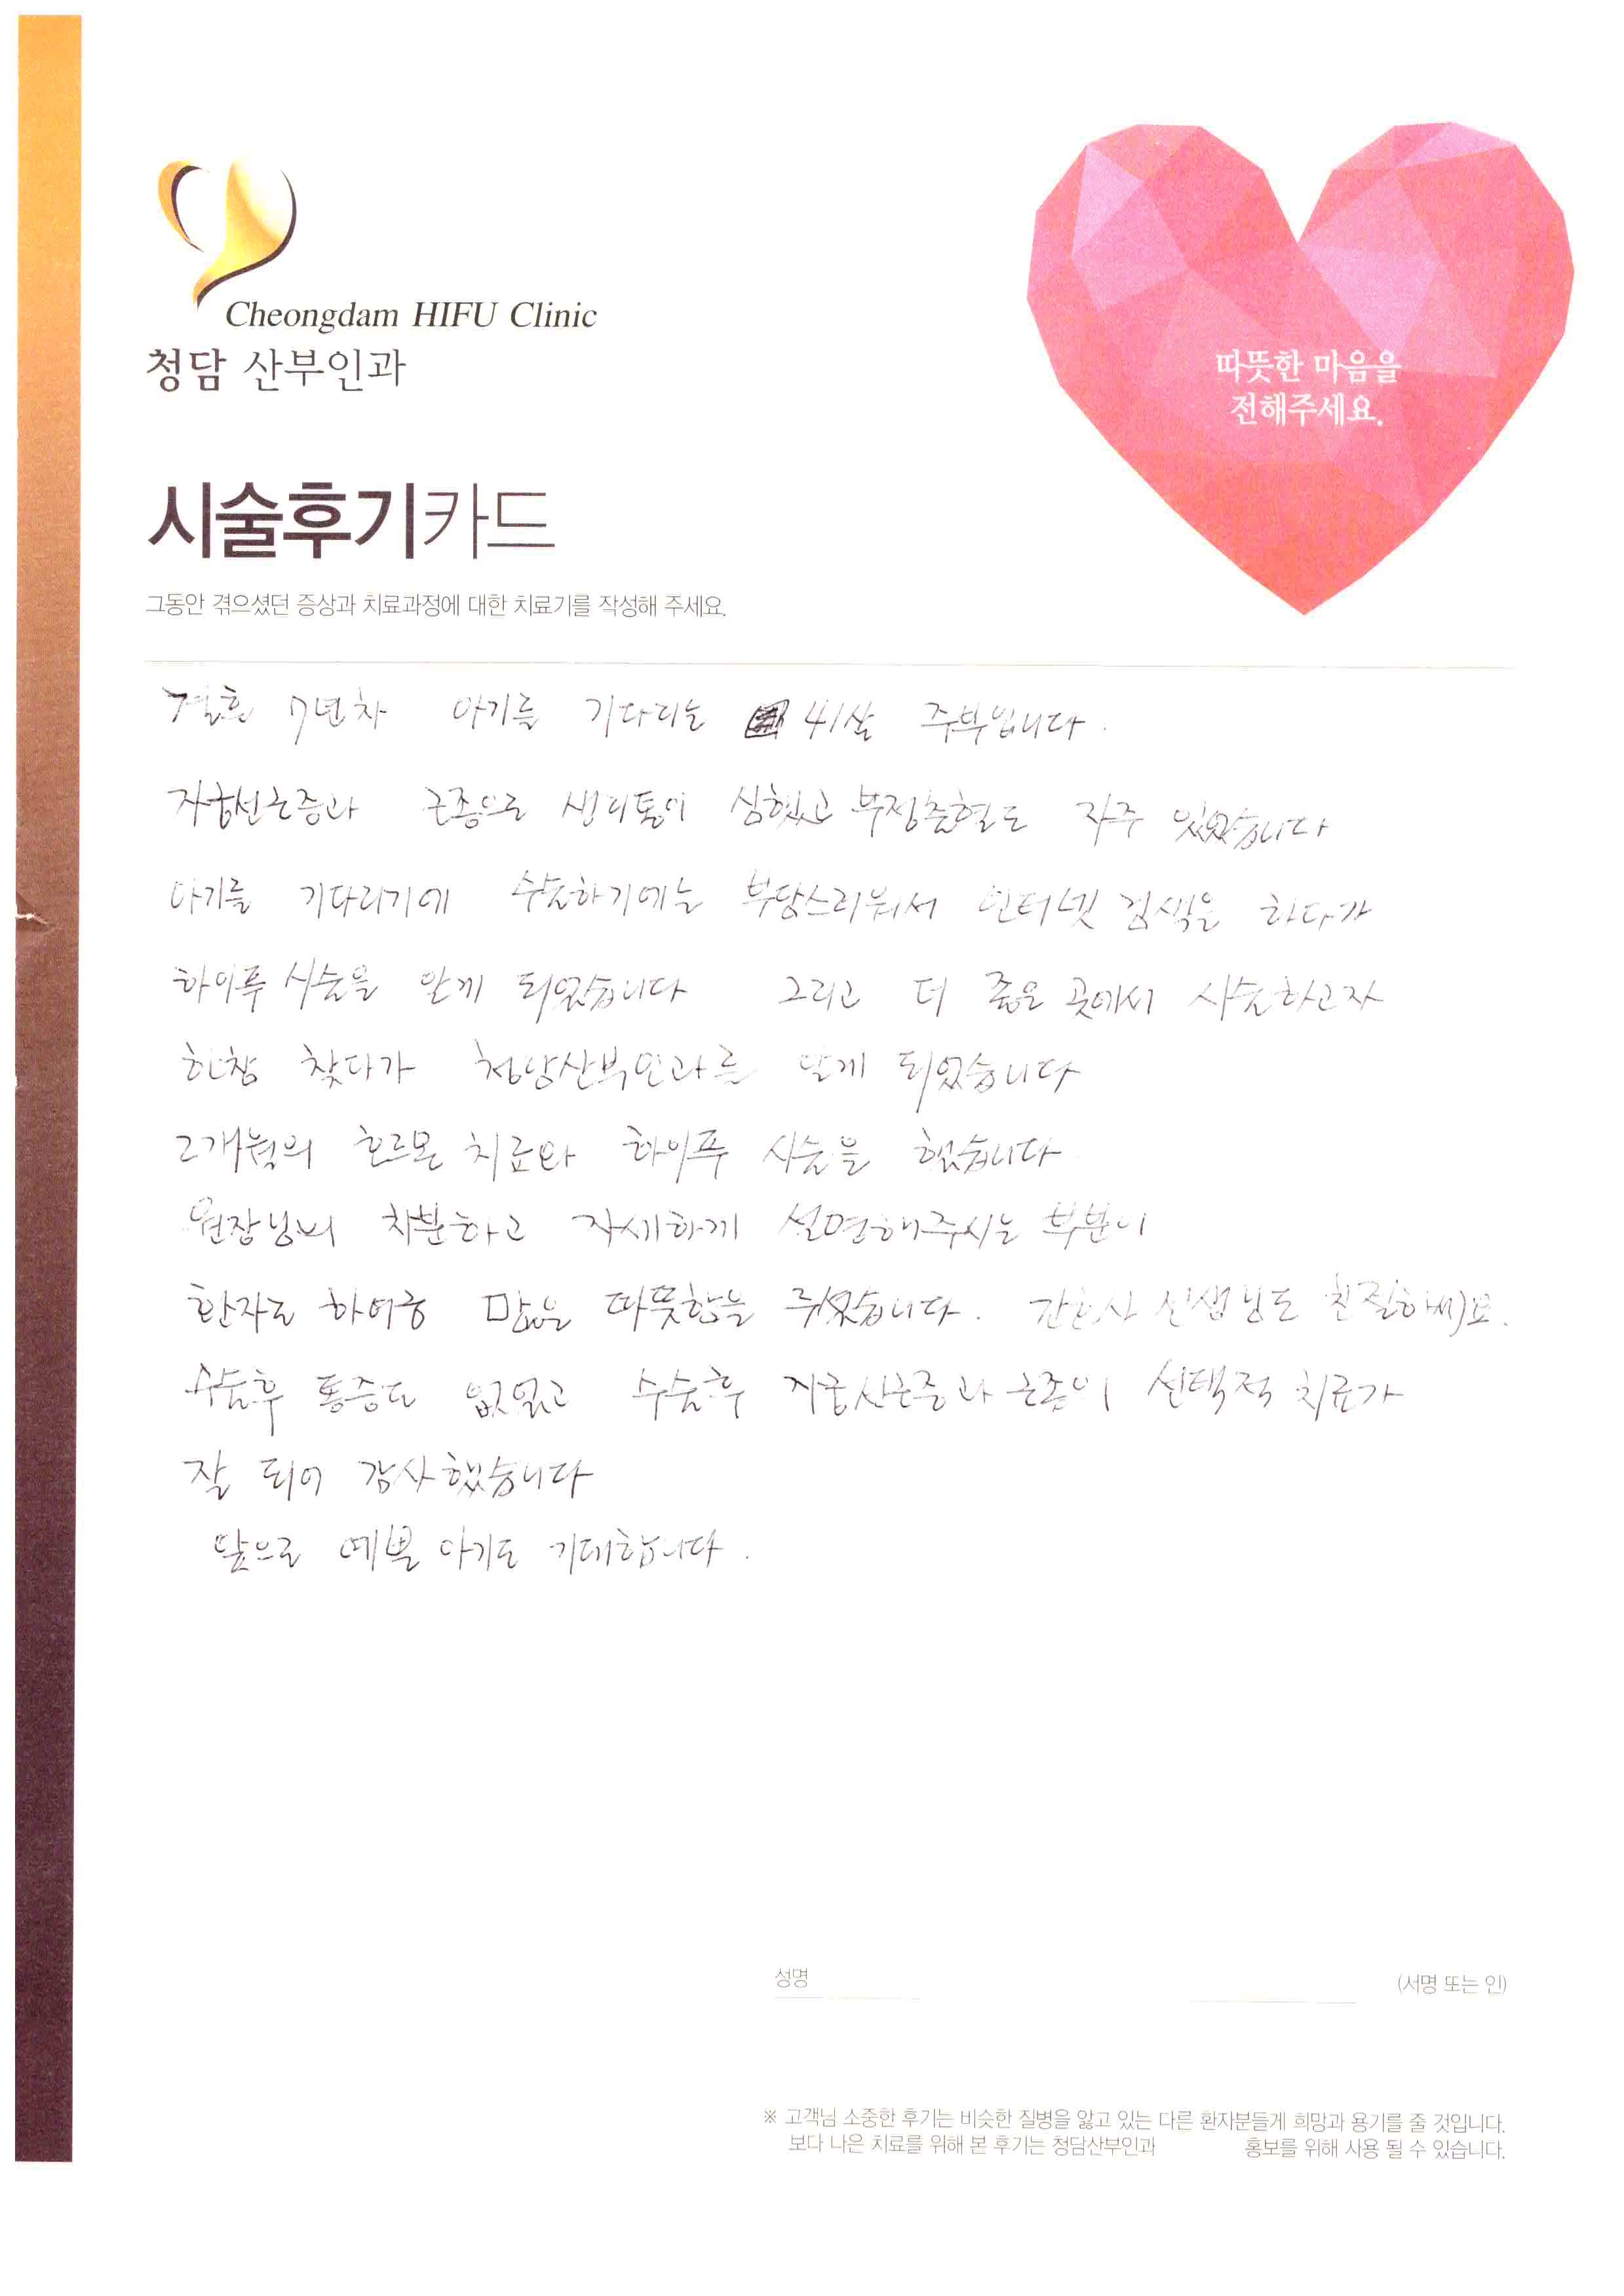 Cheongdam HIFU Clinic
청담 산부인과
따뜻한 마음을
전해주세요.
시술후기카드
그동안 겪으셨던 증상과 치료과정에 대한 치료기를 작성해 주세요.
결혼 7년차 아기를 기다리는 41살 주부입니다.
자궁선근증과 근종으로 생리통이 심했고 부정출혈도 자주 있었습니다
아기를 기다리기에 수술하기에는 부담스러워서 인터넷 검색을 하다가
하이푸 시술을 알게 되었습니다 그리고 더 좋은 곳에서 시술하고자
한참 찾다가 청담산부인과를 알게 되었습니다
2개월의 호르몬 치료와 하이푸 시술을 했습니다
원장님의 차분하고 자세하게 설명해주시는 부분이
환자로 하여금 많은 따뜻함을 주셨습니다. 간호사 선생님도 친절하세요.
수술후 통증도 없었고 수술후 자궁선근증과 근종이 선택적 치료가
잘 되어 감사했습니다
앞으로 예쁜 아기도 기대합니다.
성명 (서명 또는 인)
※ 고객님 소중한 후기는 비슷한 질병을 앓고 있는 다른 환자분들게 희망과 용기를 줄 것입니다.
보다 나은 치료를 위해 본 후기는 청담산부인과 홍보를 위해 사용 될 수 있습니다.